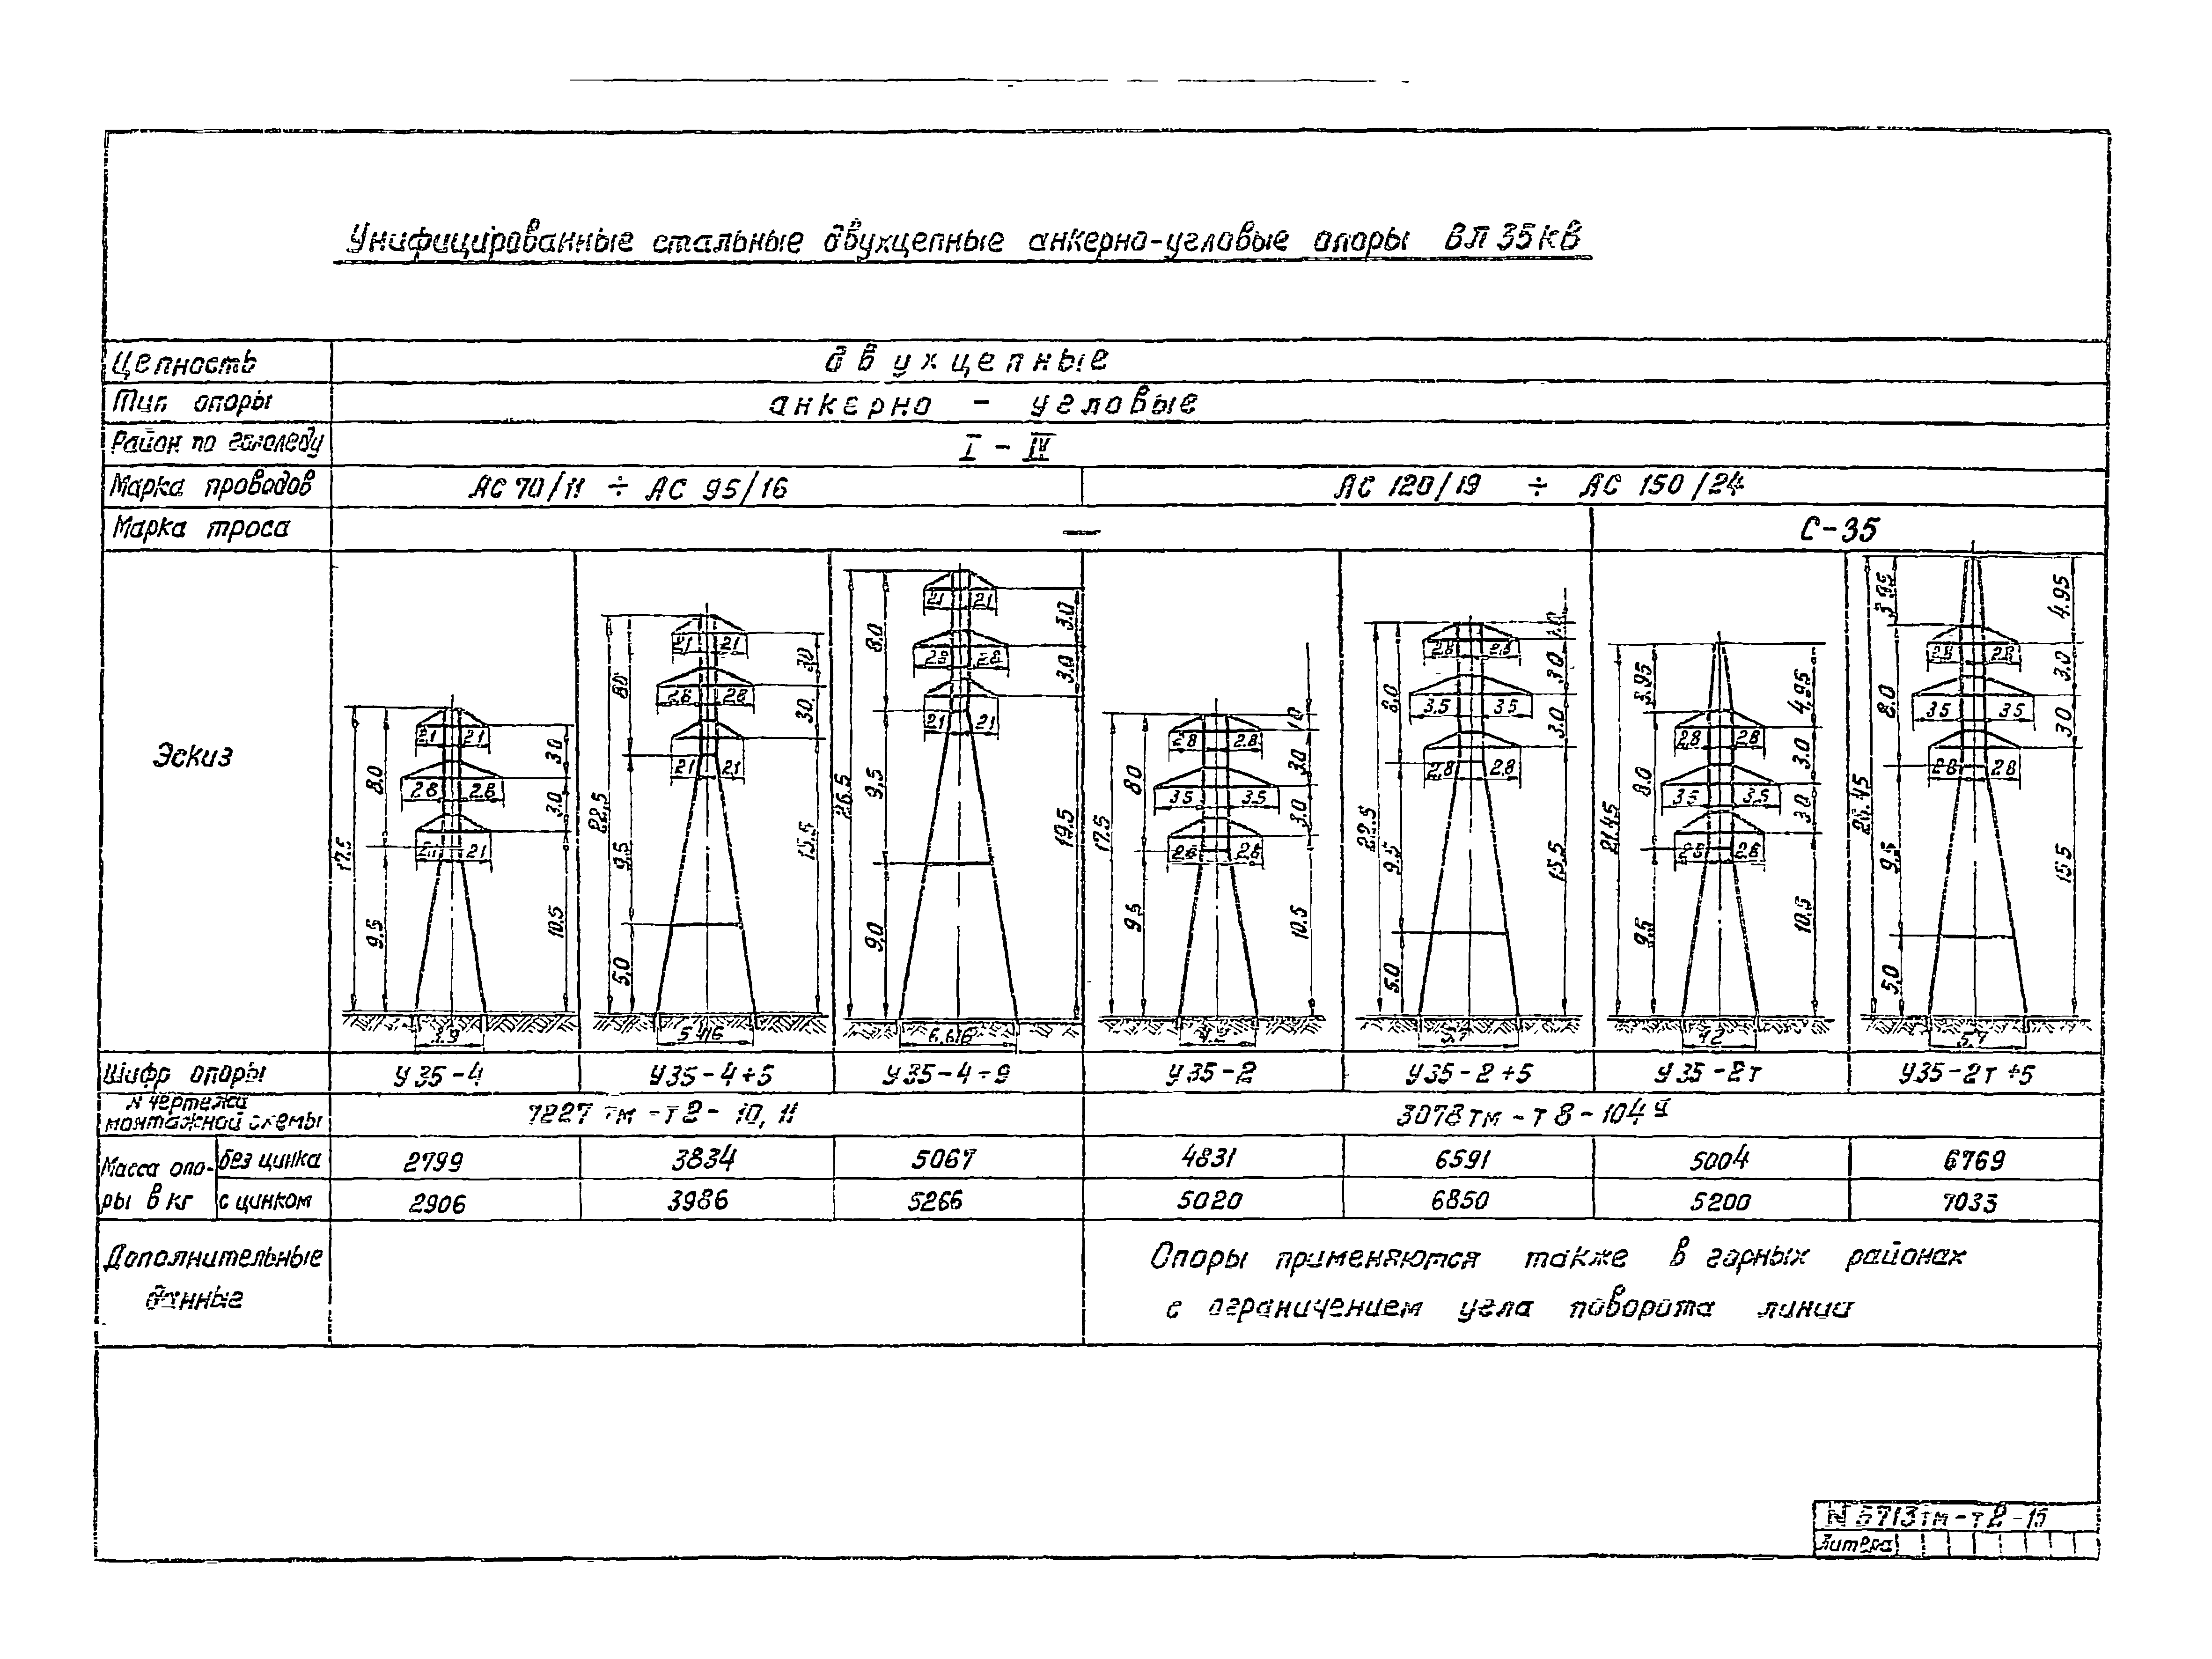 Унифицированные стальные двухцепные анкерно-угловые опоры ВЛ 35кВ
Цепность двухцепные
Тип опоры анкерно - угловые
Район по гололеду I - IV
Марка проводов АС 70/11 ÷ АС 95/16 АС 120/19 ÷ АС 150/24
Марка троса — С-35
Эскиз
17.5 8.0 9.5 2.1 2.1 2.8 2.8 2.1 2.1 3.0 3.0 10.5 3.9
22.5 8.0 9.5 5.0 2.1 2.1 2.8 2.8 2.1 2.1 3.0 3.0 15.5 5.416
26.5 8.0 9.5 9.0 2.1 2.1 2.8 2.8 2.1 2.1 3.0 3.0 19.5 6.616
17.5 8.0 9.5 2.8 2.8 3.5 3.5 2.8 2.8 1.0 3.0 3.0 10.5 4.2
22.5 8.0 9.5 5.0 2.8 2.8 3.5 3.5 2.8 2.8 1.0 3.0 3.0 15.5 5.7
21.45 3.95 8.0 9.5 2.8 2.8 3.5 3.5 2.8 2.8 4.95 3.0 3.0 10.5 4.2
26.45 3.95 8.0 9.5 5.0 2.8 2.8 3.5 3.5 2.8 2.8 4.95 3.0 3.0 15.5 5.7
Шифр опоры У35-4 У35-4+5 У35-4+9 У35-2 У35-2+5 У35-2т У35-2т+5
N чертежа
монтажной схемы 7227тм-т2-10, 11 3078тм-т8-104
Масса опоры в кг
без цинка 2799 3834 5067 4831 6591 5004 6769
с цинком 2906 3986 5266 5020 6850 5200 7033
Дополнительные
данные
Опоры применяются также в горных районах
с ограничением угла поворота линии
N 5713тм-т2-15
Литера